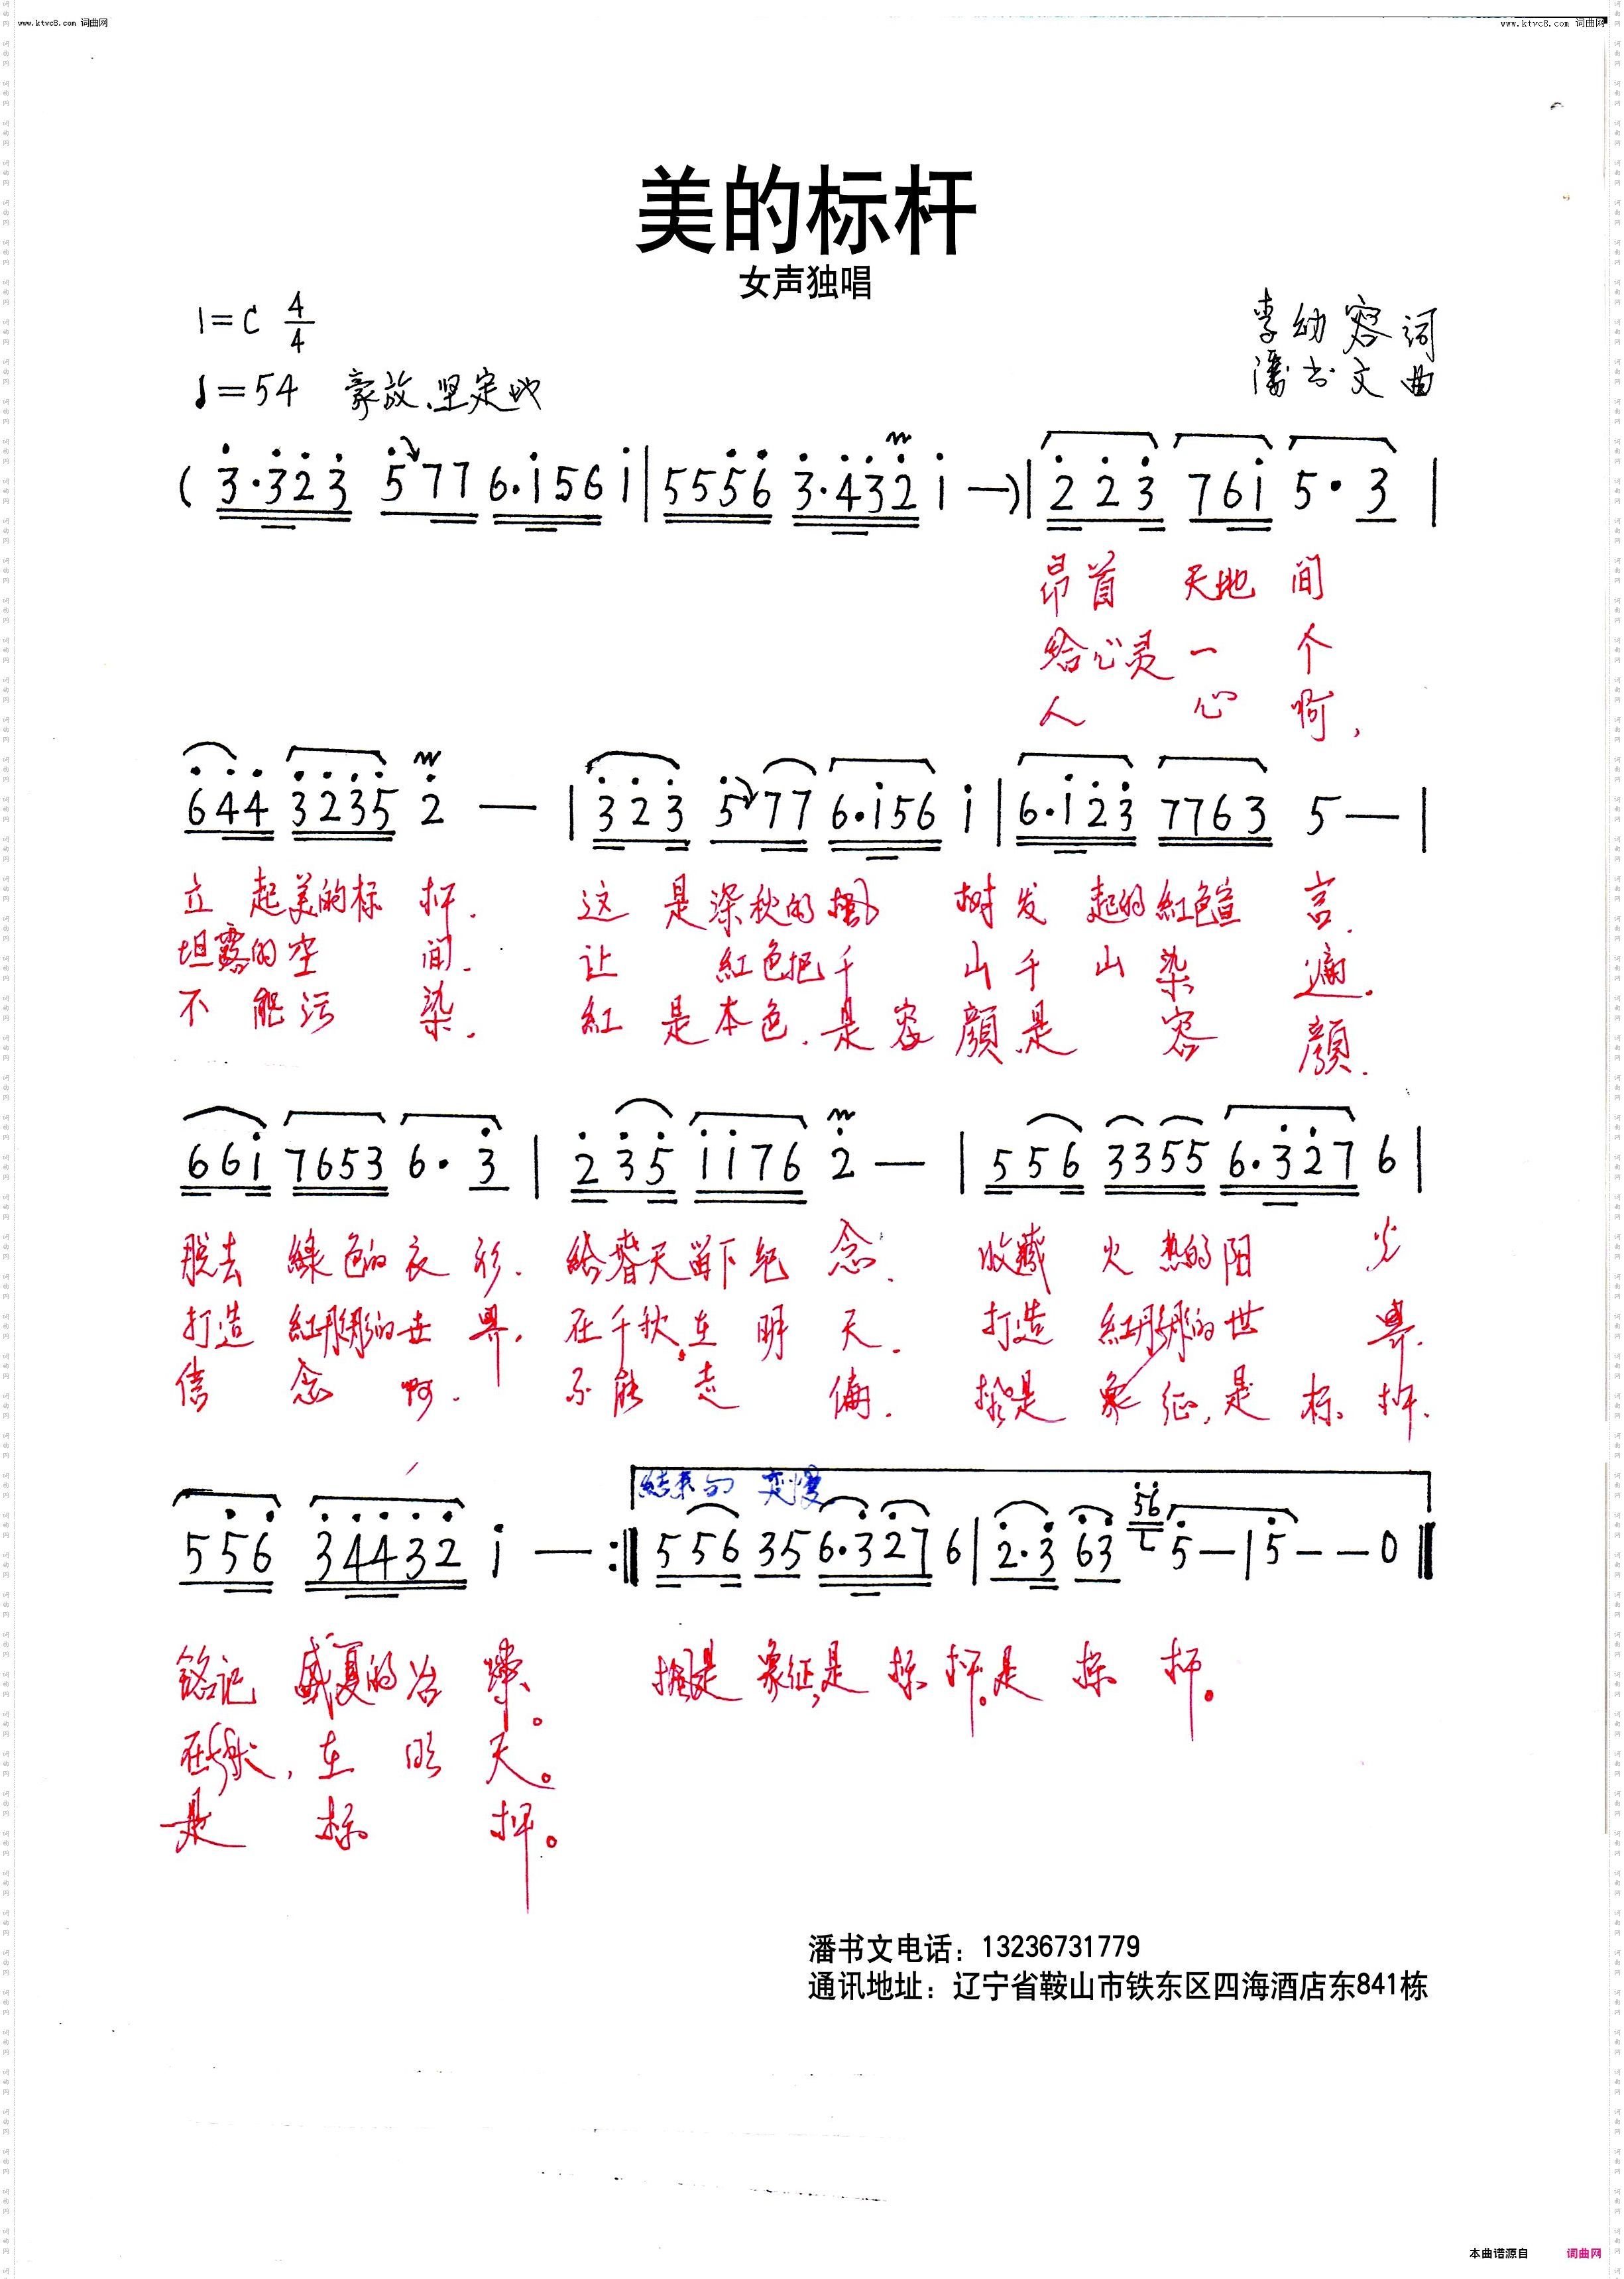 www.ktvc8.com 词曲网
www.ktvc8.com 词曲网
美的标杆
女声独唱
1=C 4/4
李幼容词
♩=54 豪放、坚定地
潘书文曲
(3·323 577 6·156 1|5556 3·432 1 —)|223 761 5·3|
昂首 天地间
给心灵一个
人心啊,
644 3235 2 — |323 577 6·156 1|6·123 7763 5 —|
立起美的标杆. 这是深秋的枫树发起的紅色宣言.
坦露的空间. 让紅色把千山千山染遍.
不能污染. 紅是本色.是容顔是容顔.
661 7653 6·3|235 1176 2 — |556 3355 6·327 6|
脱去綠色的衣衫. 給春天留下纪念. 收藏火热的阳光
打造紅彤彤的世界. 在千秋,在明天. 打造紅彤彤的世界.
信念啊. 不能走偏. 枫是象征,是标杆.
结束句 变慢
556 34432 1 — :‖556 35 6·327 6|2·3 63 56 5—|5——0‖
铭记盛夏的冶煉。 枫是象征,是标杆。是标杆。
在千秋,在明天。
是标杆。
潘书文电话：13236731779
通讯地址：辽宁省鞍山市铁东区四海酒店东841栋
本曲谱源自 词曲网